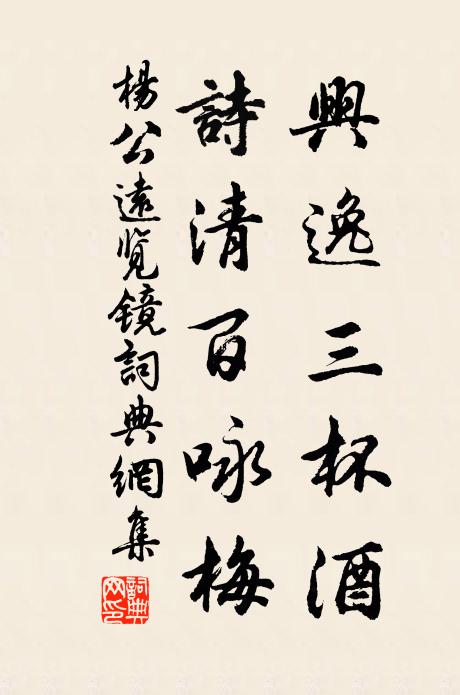 興逸三杯酒
詩清百咏梅
楊公遠覽鏡詞典網集
詞典網印